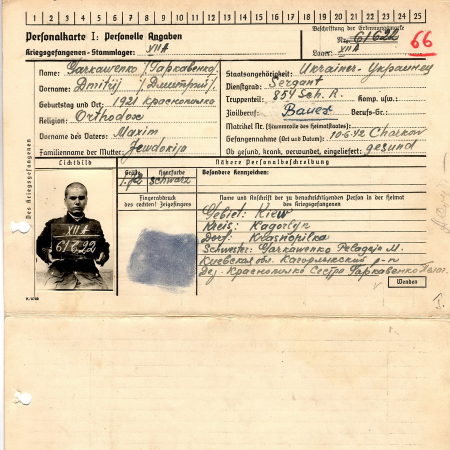 1 2 3 4 5 6 7 8 9 10 11 12 13 14 15 16 17 18 19 20 21 22 23 24 25
Personalkarte I: Personelle Angaben
Kriegsgefangenen-Stammlager: XII A
Beschriftung der Erkennungsmarke
Nr. 61622
Lager: XII A
66
Des Kriegsgefangenen
Name: Garkawenko /Гаркавенко/
Vorname: Dmitrij /Дмитрий/
Geburtstag und Ort: 1921 Краснопилко
Religion: Orthodox
Vorname des Vaters: Maxim
Familienname der Mutter: Jewdokija
Staatsangehörigkeit: Ukrainer - Украинец
Dienstgrad: Sergant
Truppenteil: 854 Sch. R. Komp. usw.:
Zivilberuf: Bauer Berufs-Gr.:
Matrikel Nr. (Stammrolle des Heimatstaates):
Gefangennahme (Ort und Datum): 10.6.42 Charkov
Ob gesund, krank, verwundet, eingeliefert: gesund
Lichtbild
Nähere Personalbeschreibung
Größe
Haarfarbe
Besondere Kennzeichen:
1.72
schwarz
XII A
61622
Fingerabdruck
des rechten! Zeigefingers
Name und Anschrift der zu benachrichtigenden Person in der Heimat
des Kriegsgefangenen
Gebiet: Kiew
Kreis: Kagorlyk
Dorf: Krasnopilka
Schwester: Garkawenko Pelageja M.
Киевская обл. Кагорлыкский р-н
Дер. Краснопилко Сестра Гаркавенко
Wenden